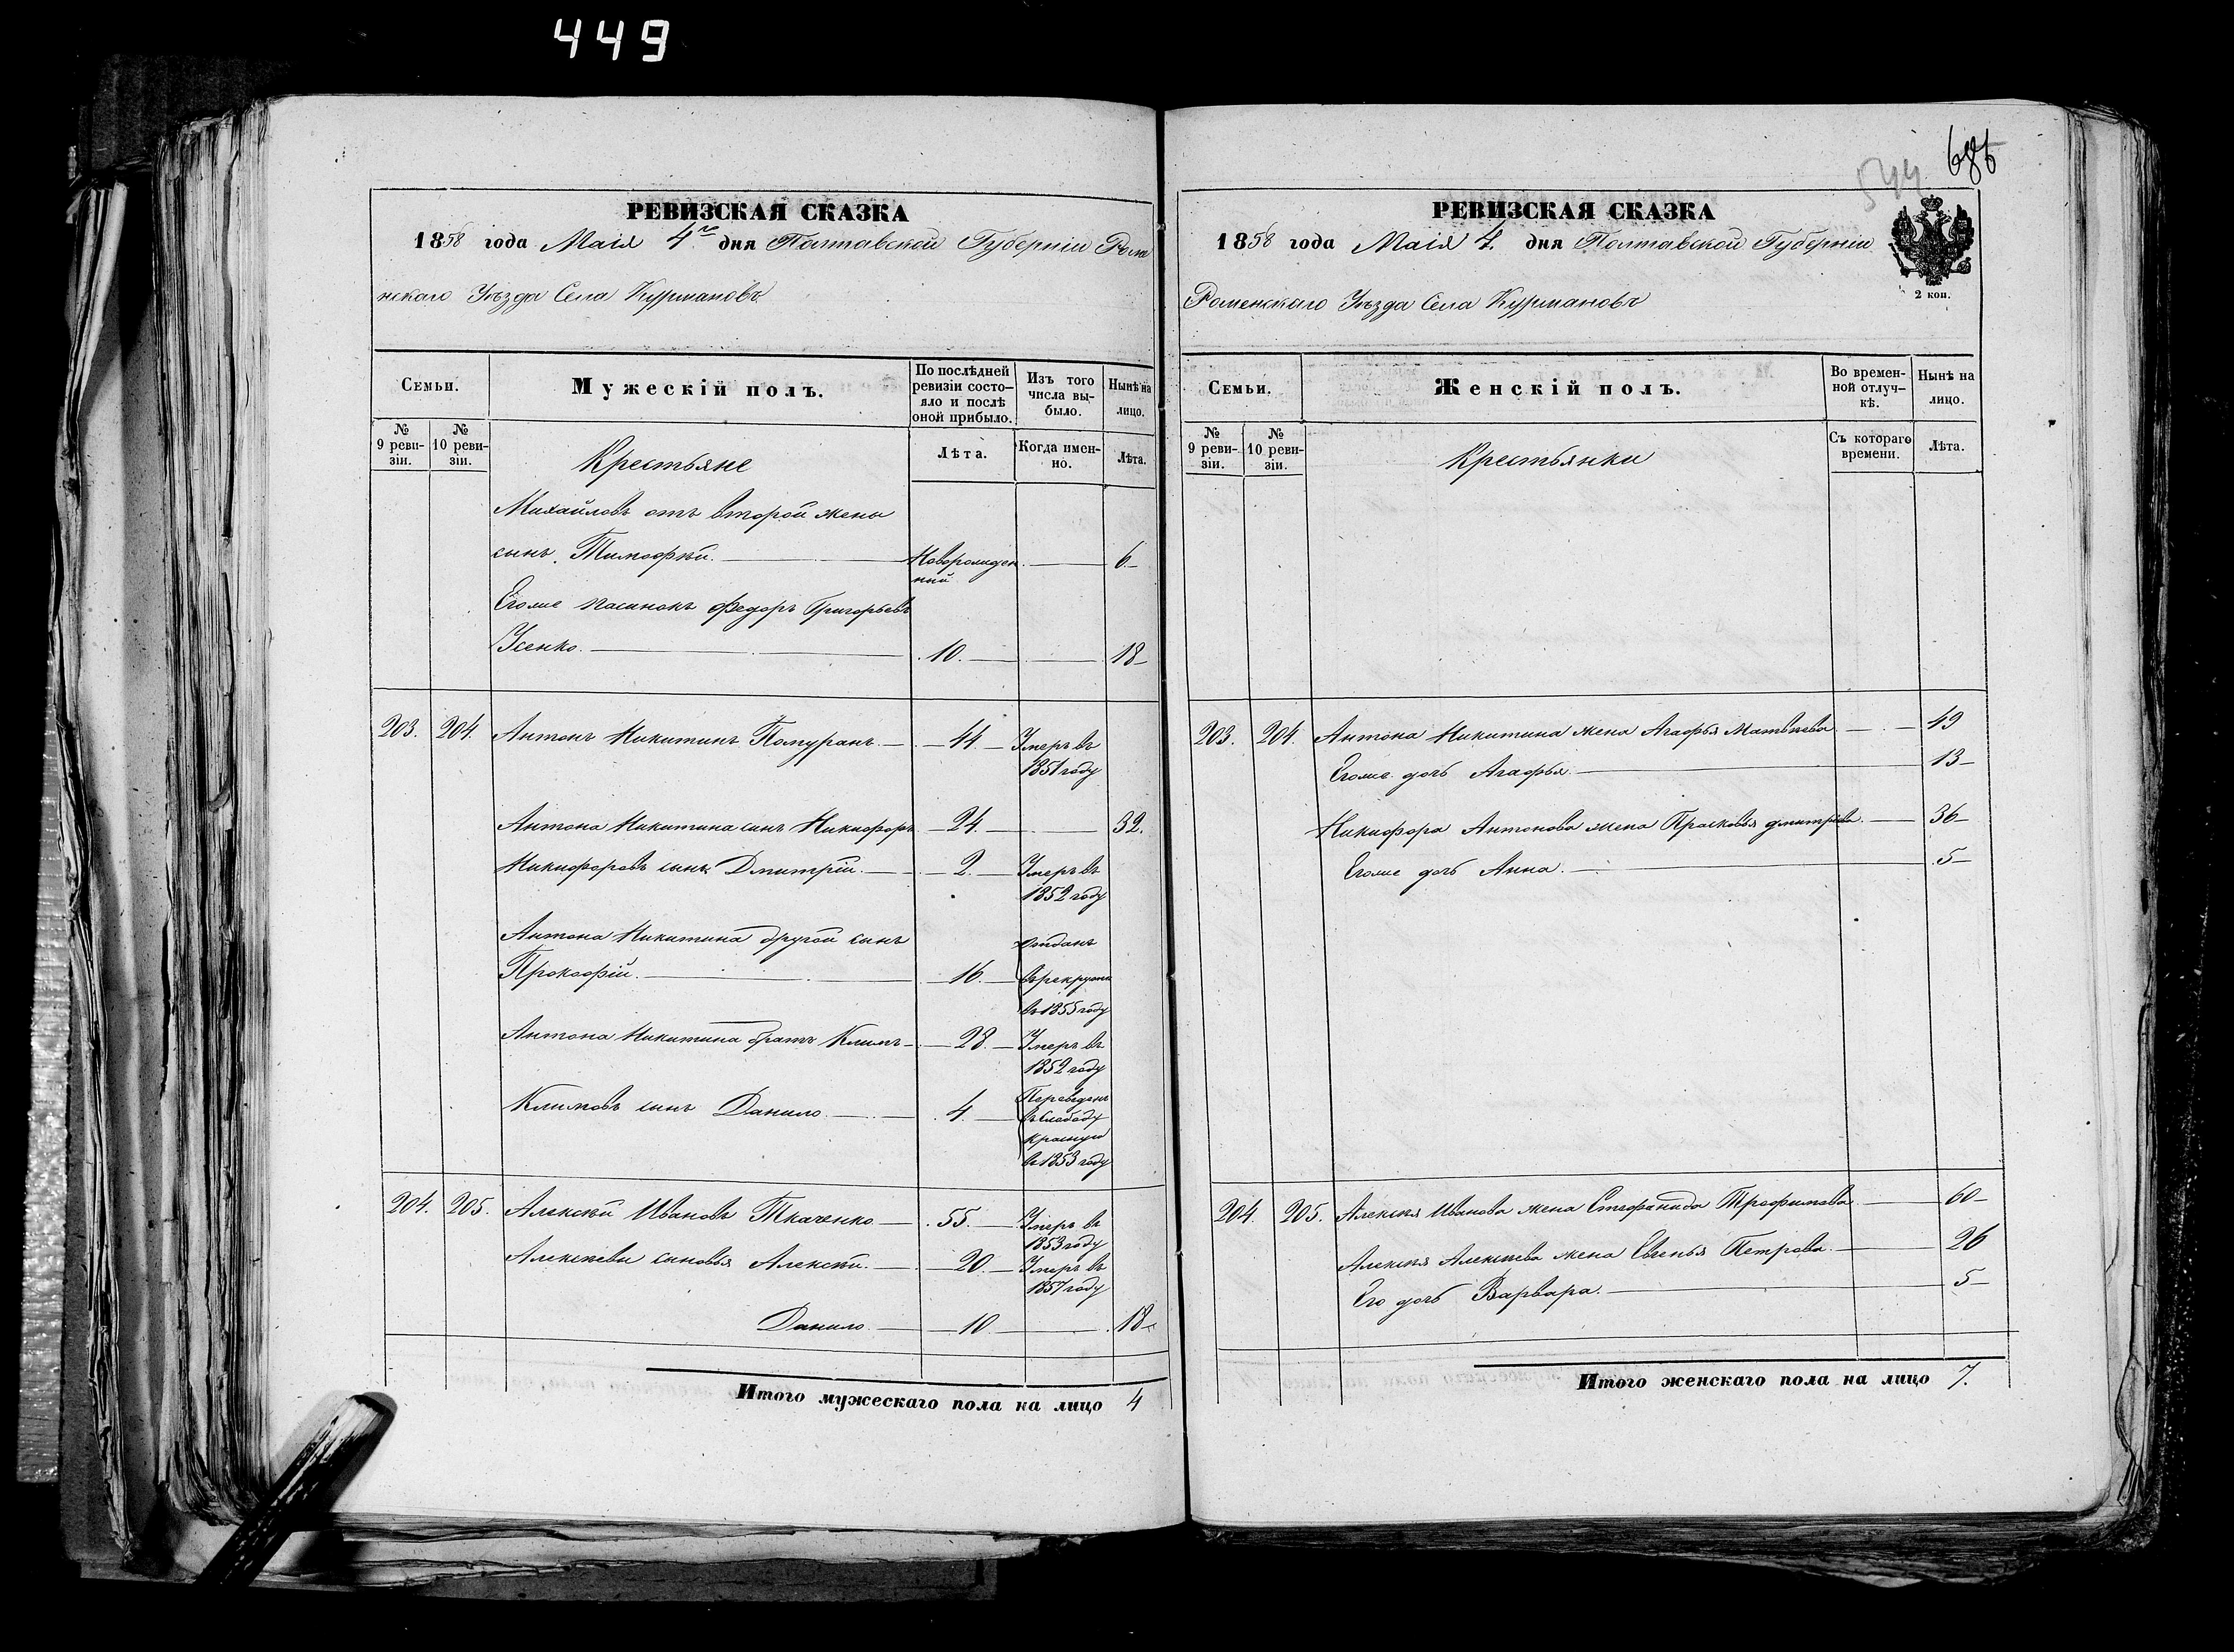 449
РЕВИЗСКАЯ СКАЗКА
1858 года Маія 4го дня Полтавской Губерніи Роме
нскаго Уѣзда Села Курмановъ
Семьи.
Мужескій полъ.
По послѣдней ревизіи состо-
яло и послѣ оной прибыло.
Изъ того числа вы-
было.
Нынѣ на лицо.
№ 9 реви-
зіи.
№ 10 реви-
зіи.
Крестьяне
Лѣта.
Когда имен-
но.
Лѣта.
Михайловъ отъ второй жены
сынъ Тимофѣй. Новорожден
ный 6
Егоже пасинокъ Федоръ Григорьевъ
Усенко. 10. 18
203. 204. Антонъ Никитинъ 44 Умеръ въ
1851 году
Антона Никитина сынъ Никифоръ 24. 32.
Никифоровъ сынъ Дмитрій. 2. Умеръ въ
1852 году
Антона Никитина другой сынъ отданъ
Прокофій. 16. въ рекруты
въ 1855 году
Антона Никитина братъ Климъ 28. Умеръ въ
1852 году
Климовъ сынъ Данило 4. Переведенъ
въ Слободу
Красную
въ 1853 году
204. 205. Алексѣй Ивановъ Ткаченко 55. Умеръ въ
1853 году
Алексѣевы сыновья Алексѣй. 20. Умеръ въ
1857 году
Данило 10 18
Итого мужескаго пола на лицо 4
544
686
РЕВИЗСКАЯ СКАЗКА
1858 года Маія 4. дня Полтавской Губерніи
Роменскаго Уѣзда Села Курмановъ
2 коп.
Семьи.
Женскій полъ.
Во времен-
ной отлуч-
кѣ.
Нынѣ на лицо.
№ 9 реви-
зіи.
№ 10 реви-
зіи.
Крестьянки
Съ котораго времени.
Лѣта.
203. 204. Антона Никитина жена Агафья Матвѣева 49
Егоже дочь Агафья. 13
Никифора Антонова жена Прасковья Дмитрiева. 36
Егоже дочь Анна. 5
204. 205. Алексѣя Иванова жена Стефанида Трофимова 60
Алексѣя Алексѣева жена Евгенья Петрова. 26
Его дочь Варвара. 5
Итого женскаго пола на лицо 7.